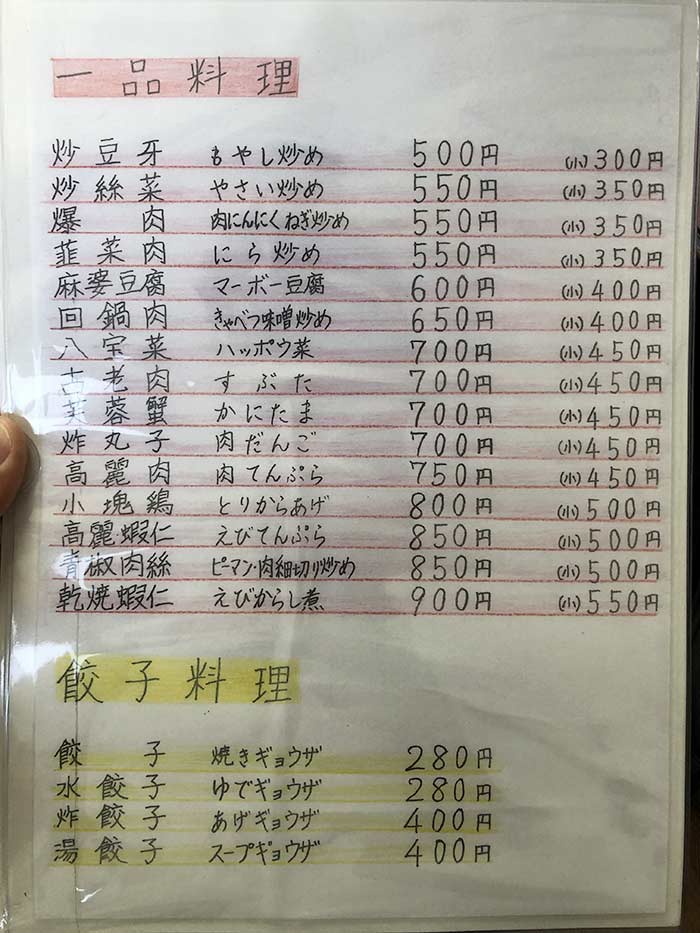 一品料理
炒豆牙 もやし炒め 500円 (小)300円
炒絲菜 やさい炒め 550円 (小)350円
爆肉 肉にんにくねぎ炒め 550円 (小)350円
韮菜肉 にら炒め 550円 (小)350円
麻婆豆腐 マーボー豆腐 600円 (小)400円
回鍋肉 きゃべつ味噌炒め 650円 (小)400円
八宝菜 ハッポウ菜 700円 (小)450円
古老肉 すぶた 700円 (小)450円
芙蓉蟹 かにたま 700円 (小)450円
炸丸子 肉だんご 700円 (小)450円
高麗肉 肉てんぷら 750円 (小)450円
小塊鶏 とりからあげ 800円 (小)500円
高麗蝦仁 えびてんぷら 850円 (小)500円
青椒肉絲 ピーマン・肉細切り炒め 850円 (小)500円
乾焼蝦仁 えびからし煮 900円 (小)550円
餃子料理
餃子 焼きギョウザ 280円
水餃子 ゆでギョウザ 280円
炸餃子 あげギョウザ 400円
湯餃子 スープギョウザ 400円